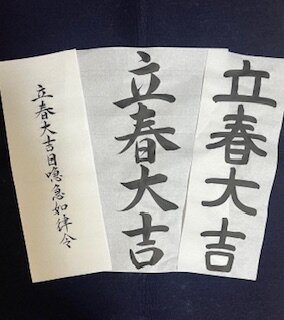 立春大吉日噫急如律令
立春大吉
立春大吉